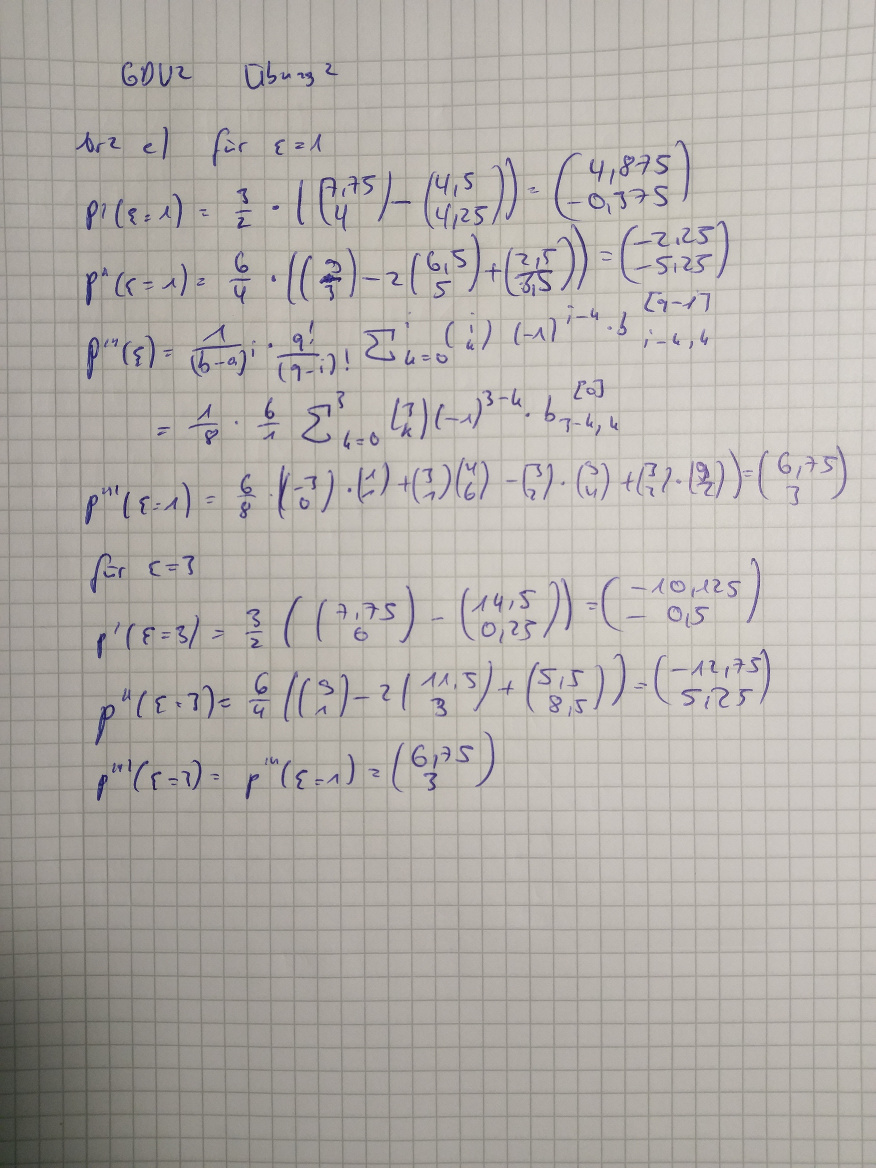 GDV2 Übung 2
Nr 2 c) für ε = 1
p'(ε=1) = 3/2 · ((7,75 4) − (4,5 4,25)) = (4,875 −0,375)
p''(ε=1) = 6/4 · ((9 3) − 2(6,5 5) + (2,5 3,5)) = (−2,25 −5,25)
p'''(ε) = 1/(b−a)^i · q!/(q−i)! Σ^i_{k=0} (i k) (−1)^{i−k} · b^{[q−i]}_{i−k,k}
= 1/8 · 6/1 Σ^3_{k=0} (3 k) (−1)^{3−k} · b^{[0]}_{3−k,k}
p'''(ε=1) = 6/8 · (−(3 0) · (1 1) + (3 1)(4 6) − (3 2) · (9 4) + (3 3) · (9 2)) = (6,75 3)
für ε=3
p'(ε=3) = 3/2 ((7,75 6) − (14,5 0,25)) = (−10,125 − 0,5)
p''(ε=3) = 6/4 ((9 1) − 2(11,5 3) + (5,5 8,5)) = (−12,75 5,25)
p'''(ε=3) = p'''(ε=1) = (6,75 3)